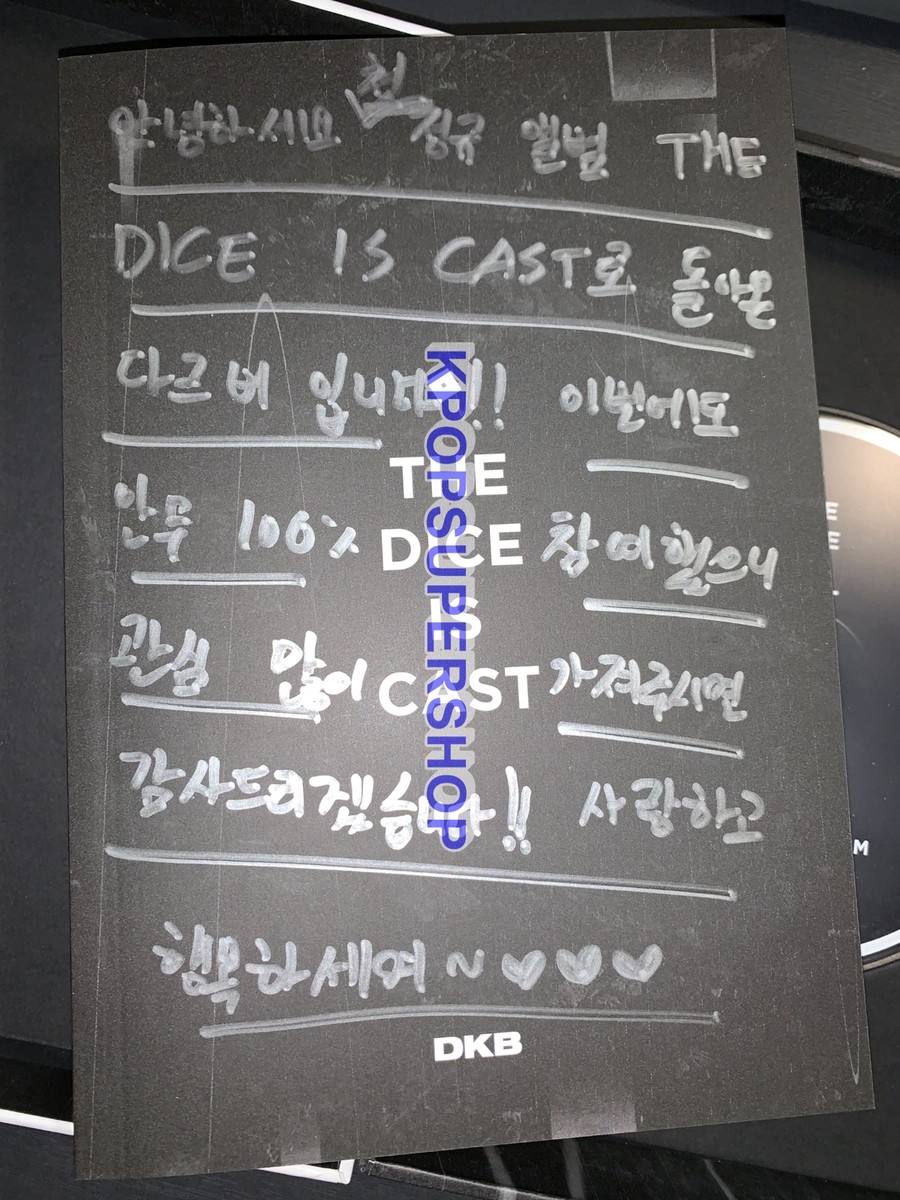 안녕하세요 첫 정규 앨범 THE
DICE IS CAST로 돌아온
다크비 입니다!! 이번에도
THE
안무 100% 참여했으니
DICE
IS
관심 많이 가져주시면
CAST
감사드리겠습니다!! 사랑하고
행복하세여~♡♡♡
DKB
KPOPSUPERSHOP
E
E
M